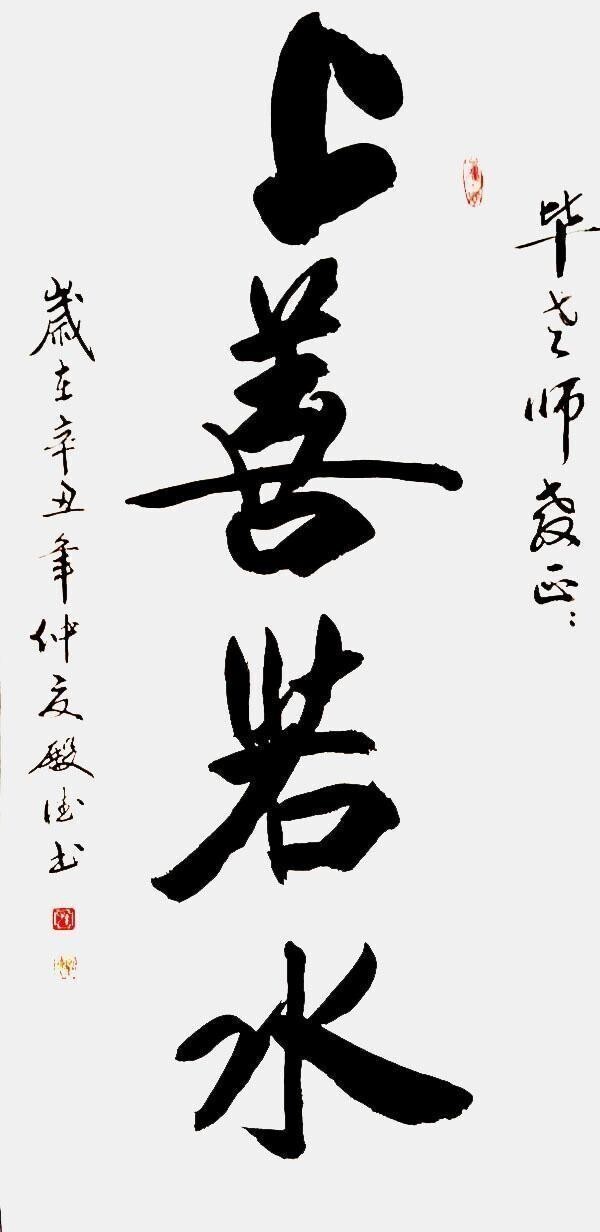 毕老师教正:
上善若水
歲在辛丑年仲夏殿德书